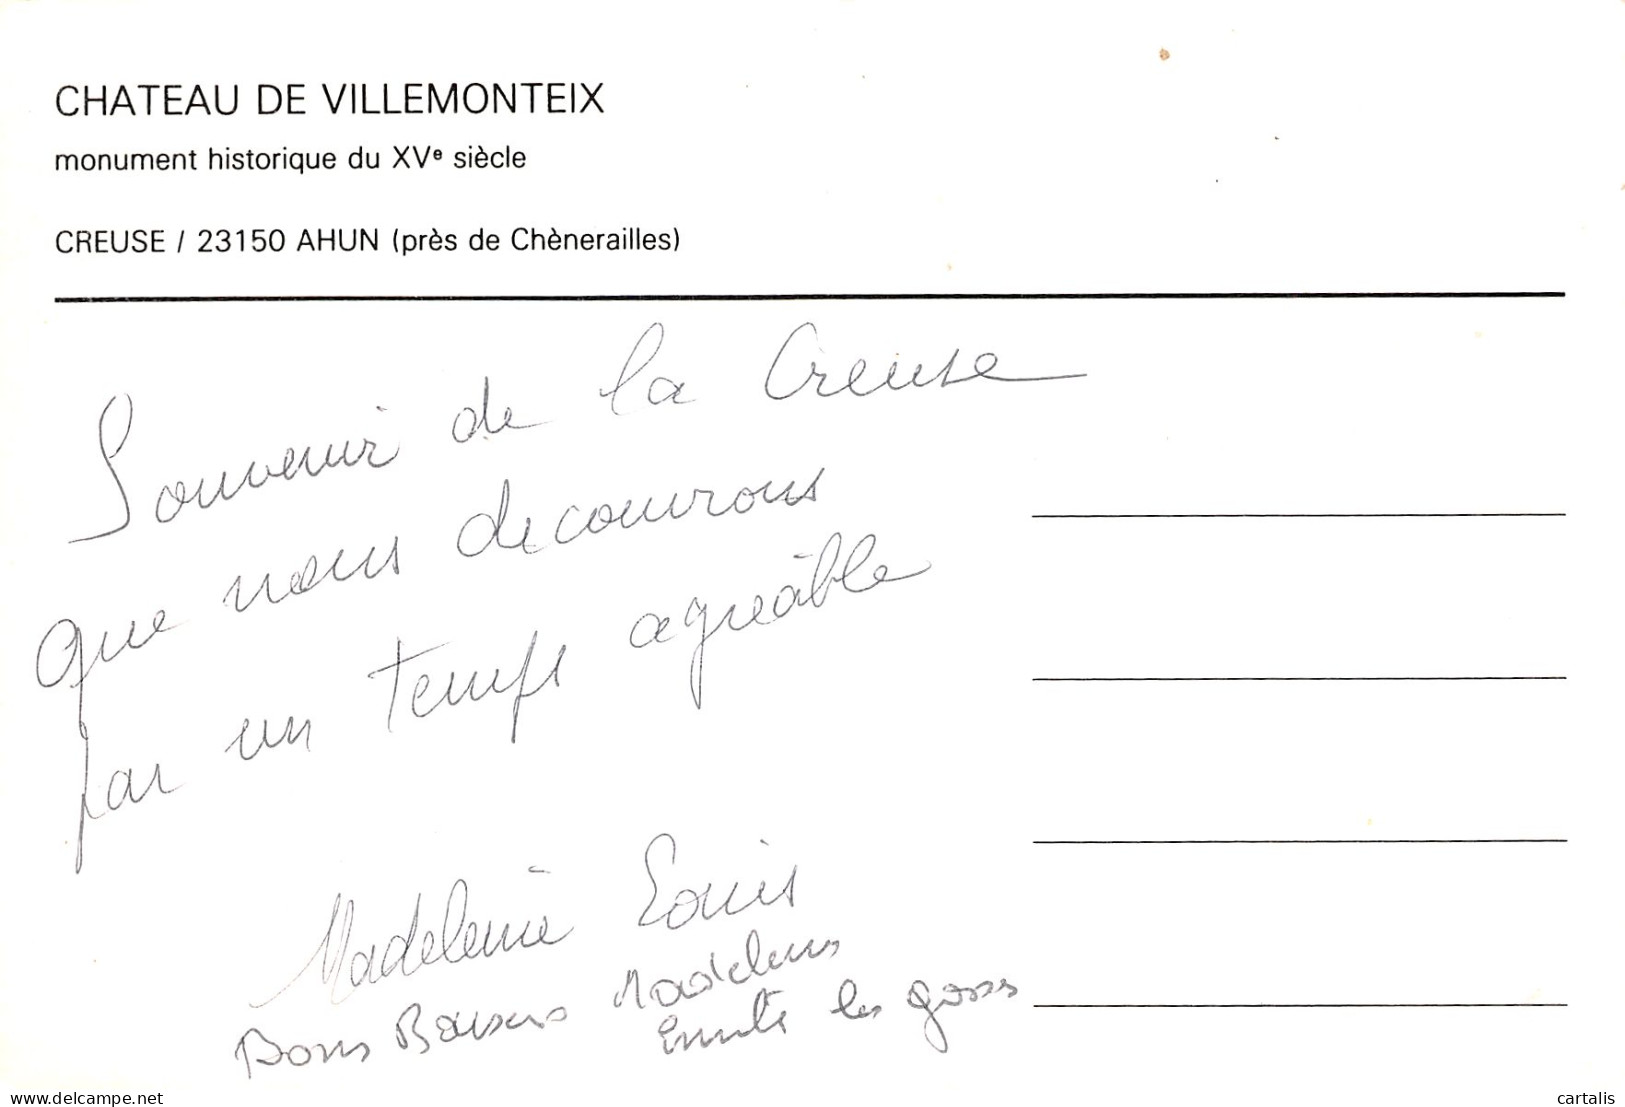 CHATEAU DE VILLEMONTEIX
monument historique du XVe siècle
CREUSE / 23150 AHUN (près de Chènerailles)
Souvenir de la Creuse
que nous decouvrons
par un temps agréable
Madeleine Louis
Bons Baisers
les gosses
www.delcampe.net
cartalis